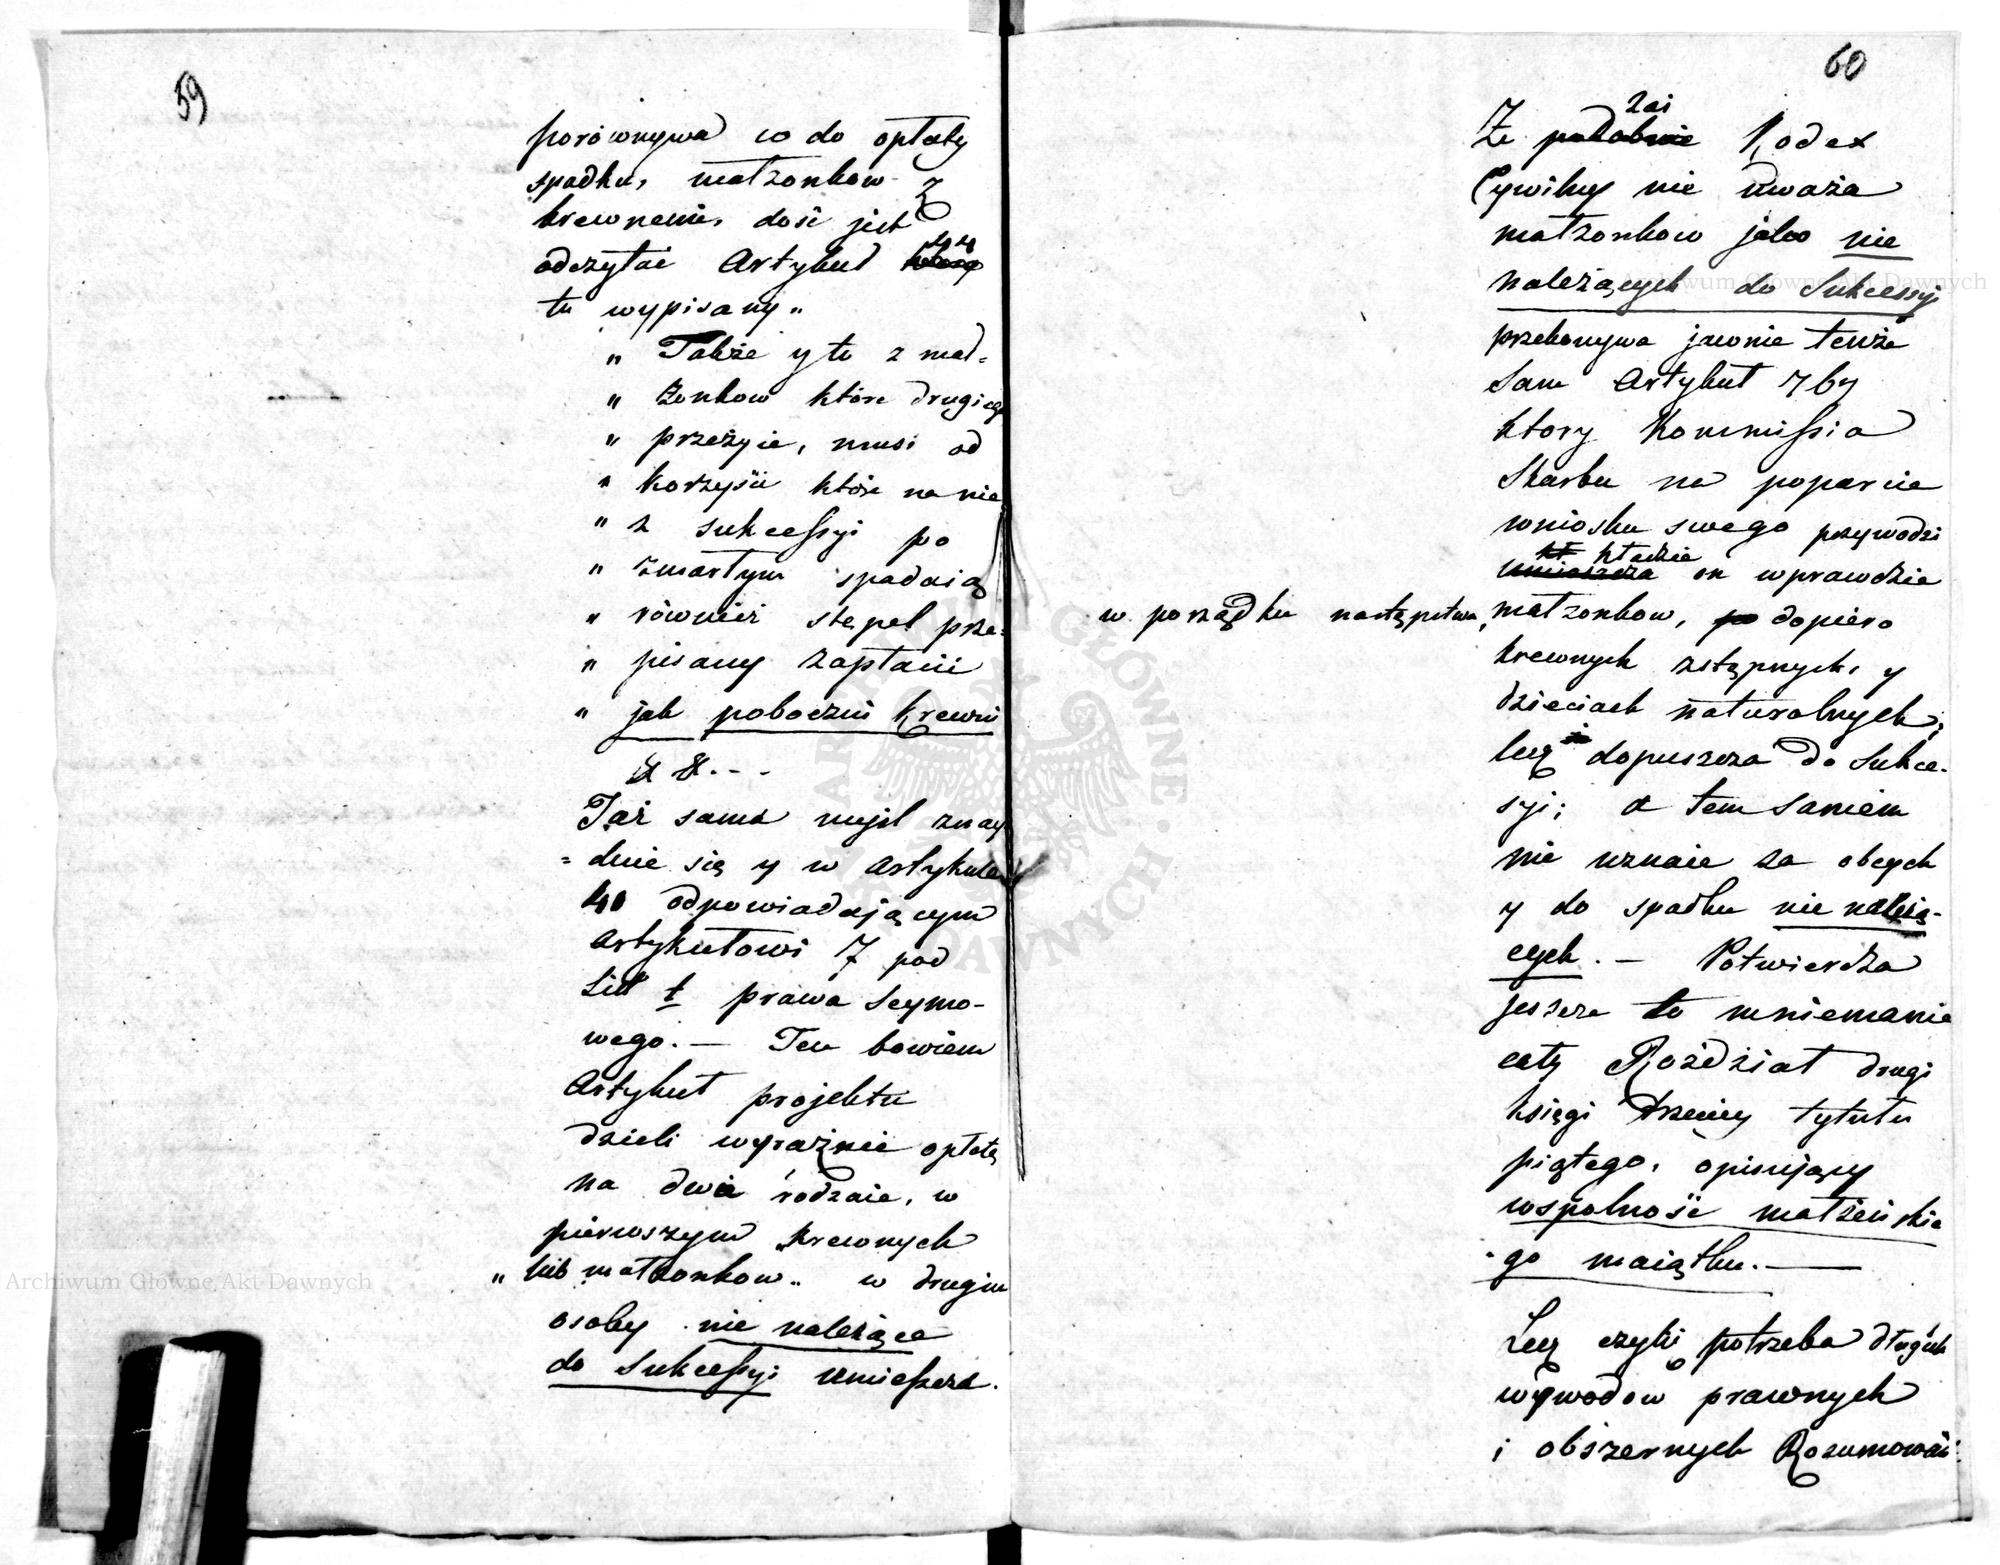 59
porównywa co do opłaty
spadku, małzonkow z
krewnemi, dość jest
odczytać Artykuł 44
tu wypisany„
„ Także y te z mał-
„ żonkow które drugiego
„ przeżyie, musi od
„ korzyści które na nie
„ z sukcessyi po
„ zmarłym spadaią
„ również stępel prze-
„ pisany zapłacić
„ jak poboczni krewni
& &. - -
Taż sama myśl znay
= duie się y w Artykule
40 odpowiadającym
Artykułowi 7 pod
Litt t prawa Seymo-
wego. — Ten bowiem
Artykuł projektu
dzieli wyraźnie opłatę
na dwa rodzaie, w
pierwszym „krewnych
„ lub małzonkow„ w drugim
osoby nie należące
do Sukcessyi umieszcza.
60
Że zaś podobnie Kodex
Cywilny nie uważa
małzonkow jako nie
należących do Sukcessyi
przekonywa jawnie tenże
Sam Artykuł 767
ktory Kommissia
Skarbu na poparcie
wniosku swego przywodzi
umieszcza kładzie on wprawdzie
w porządku następstwa, małzonkow, po dopiero
krewnych zstępnych, y
dzieciach naturalnych,
lecz dopuszcza do Sukce-
syi; a tem samem
nie uznaie za obcych
y do spadku nie należą-
cych. — Potwierdza
jeszcze to mniemanie
cały Rozdział drugi
księgi trzeciey tytułu
piątego, opisujący
wspólność małżeńskie
-go maiątku. —
Lecz czyliż potrzeba długich
wywodow prawnych
i obszernych Rozumowań
Archiwum Główne Akt Dawnych
Archiwum Główne Akt Dawnych
ARCHIWUM GŁÓWNE AKT DAWNYCH